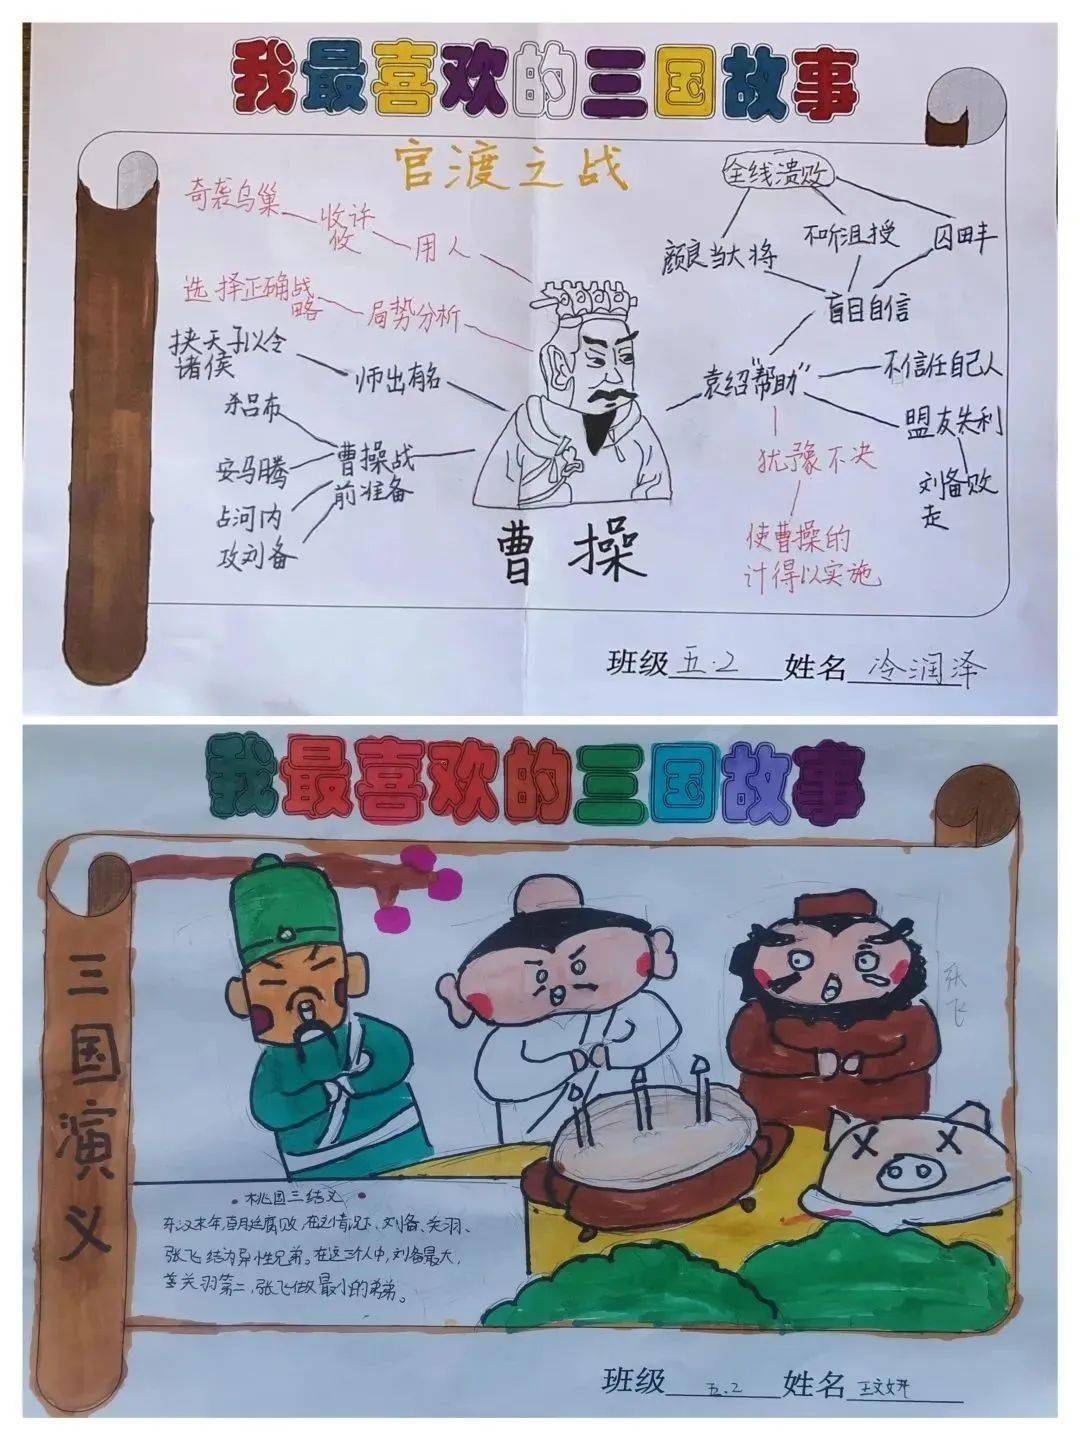 我最喜欢的三国故事
官渡之战
奇袭乌巢
收许
攸
用人
选择正确战
略
局势分析
挟天子以令
诸侯
师出有名
杀吕布
安马腾
占河内
攻刘备
曹操战
前准备
曹操
全线溃败
颜良当大将
不听沮授
囚田丰
盲目自信
袁绍"帮助"
不信任自己人
盟友失利
刘备败
走
犹豫不决
使曹操的
计得以实施
班级 五.2 姓名 冷润泽
我最喜欢的三国故事
三国演义
张飞
·桃园三结义·
东汉末年,朝廷腐败,在这情况下,刘备、关羽、
张飞结为异性兄弟。在这三个人中,刘备最大,
关羽第二,张飞做最小的弟弟。
班级 五.2 姓名 王文妍